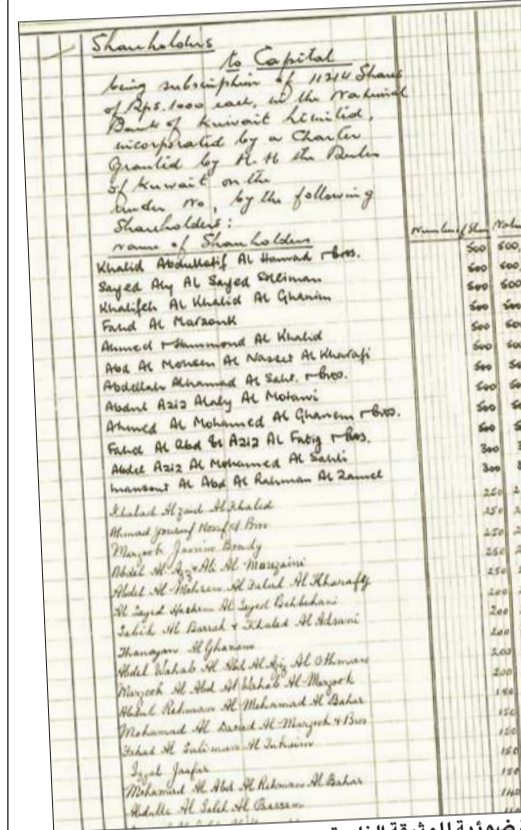 Shareholders
to Capital
being subscription of 11214 Shares
of Rps. 1000 each, in the National
Bank of Kuwait Limited,
incorporated by a Charter
Granted by H.H the Ruler
of Kuwait on the
under No, by the following
Shareholders:
Name of Shareholders
Number of Shares
Khalid Abdullatif Al Hamad & Bros. 500 500
Sayed Aly Al Sayed Soliman 500 500
Khalifeh Al Khalid Al Ghanim 500 500
Fahd Al Marzouk 500 500
Ahmed & Hammoud Al Khalid 500
Abd Al Mohsen Al Nasser Al Kharafi 500
Abdellah Alhamad Al Sakr. & Bros. 500
Abdul Aziz Alaly Al Motawi 500
Ahmed Al Mohamed Al Ghanem & Bros. 500
Fahd Al Abd El Aziz Al Fatig & Bros. 500
Abdel Aziz Al Mohamed Al Sahli 300
Mansour Al Abd Al Rahman Al Zamel 300
Khalad Al Zaid Al Khaled 250
Ahmad Yousuf & Bros 250
Marzook Jassim Boody 250
Abdel Al Aziz Ali Al Muzaini 250
Abdel Al Mohsem Al Kharafy 250
Al Sayed Hashem Al Sayed Behbehani 200
Salih Al Barrak & Khaled Al Adsani 200
Thanayan Al Ghanem 200
Abdel Wahab Al Abd Al Aziz Al Othman 200
Marzook Al Abd Al Wahab Al-Marzook 200
Abdul Rehman Al-Mohamad Al Bahar
Mohamad Al Daoud Al-Marzook & Bros 150
Fahad Al Suliman Al 150
Izzat Jaafar 150
Mohamad Al Abd Al Rehman Al Bahar 150
Abdulla Al Saleh Al Bassam 140